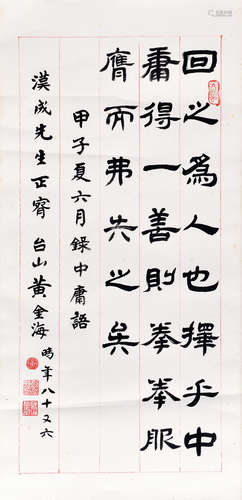 回之為人也擇乎中
庸得一善則拳拳服
膺而弗失之矣
甲子夏六月錄中庸語
漢成先生正宥 台山黃金海
時年八十又六